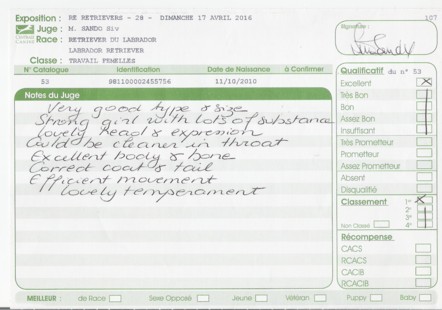 Exposition : RE RETRIEVERS - 28 - DIMANCHE 17 AVRIL 2016
107
Juge : M. SANDO Siv
Race : RETRIEVER DU LABRADOR
LABRADOR RETRIEVER
Classe : TRAVAIL FEMELLES
Signature :
N° Catalogue Identification Date de Naissance à Confirmer
53 981100002455756 11/10/2010
Notes du Juge
Very good type & size
Strong girl with lots of substance
lovely head & expression
Could be cleaner in throat
Excellent body & bone
Correct coat & tail
Efficient movement
lovely temperament
Qualificatif du n° 53
Excellent X
Très Bon
Bon
Assez Bon
Insuffisant
Très Prometteur
Prometteur
Assez Prometteur
Absent
Disqualifié
Classement 1° X
2°
3°
Non Classé 4°
Récompense
CACS
RCACS
CACIB
RCACIB
MEILLEUR : de Race Sexe Opposé Jeune Vétéran Puppy Baby